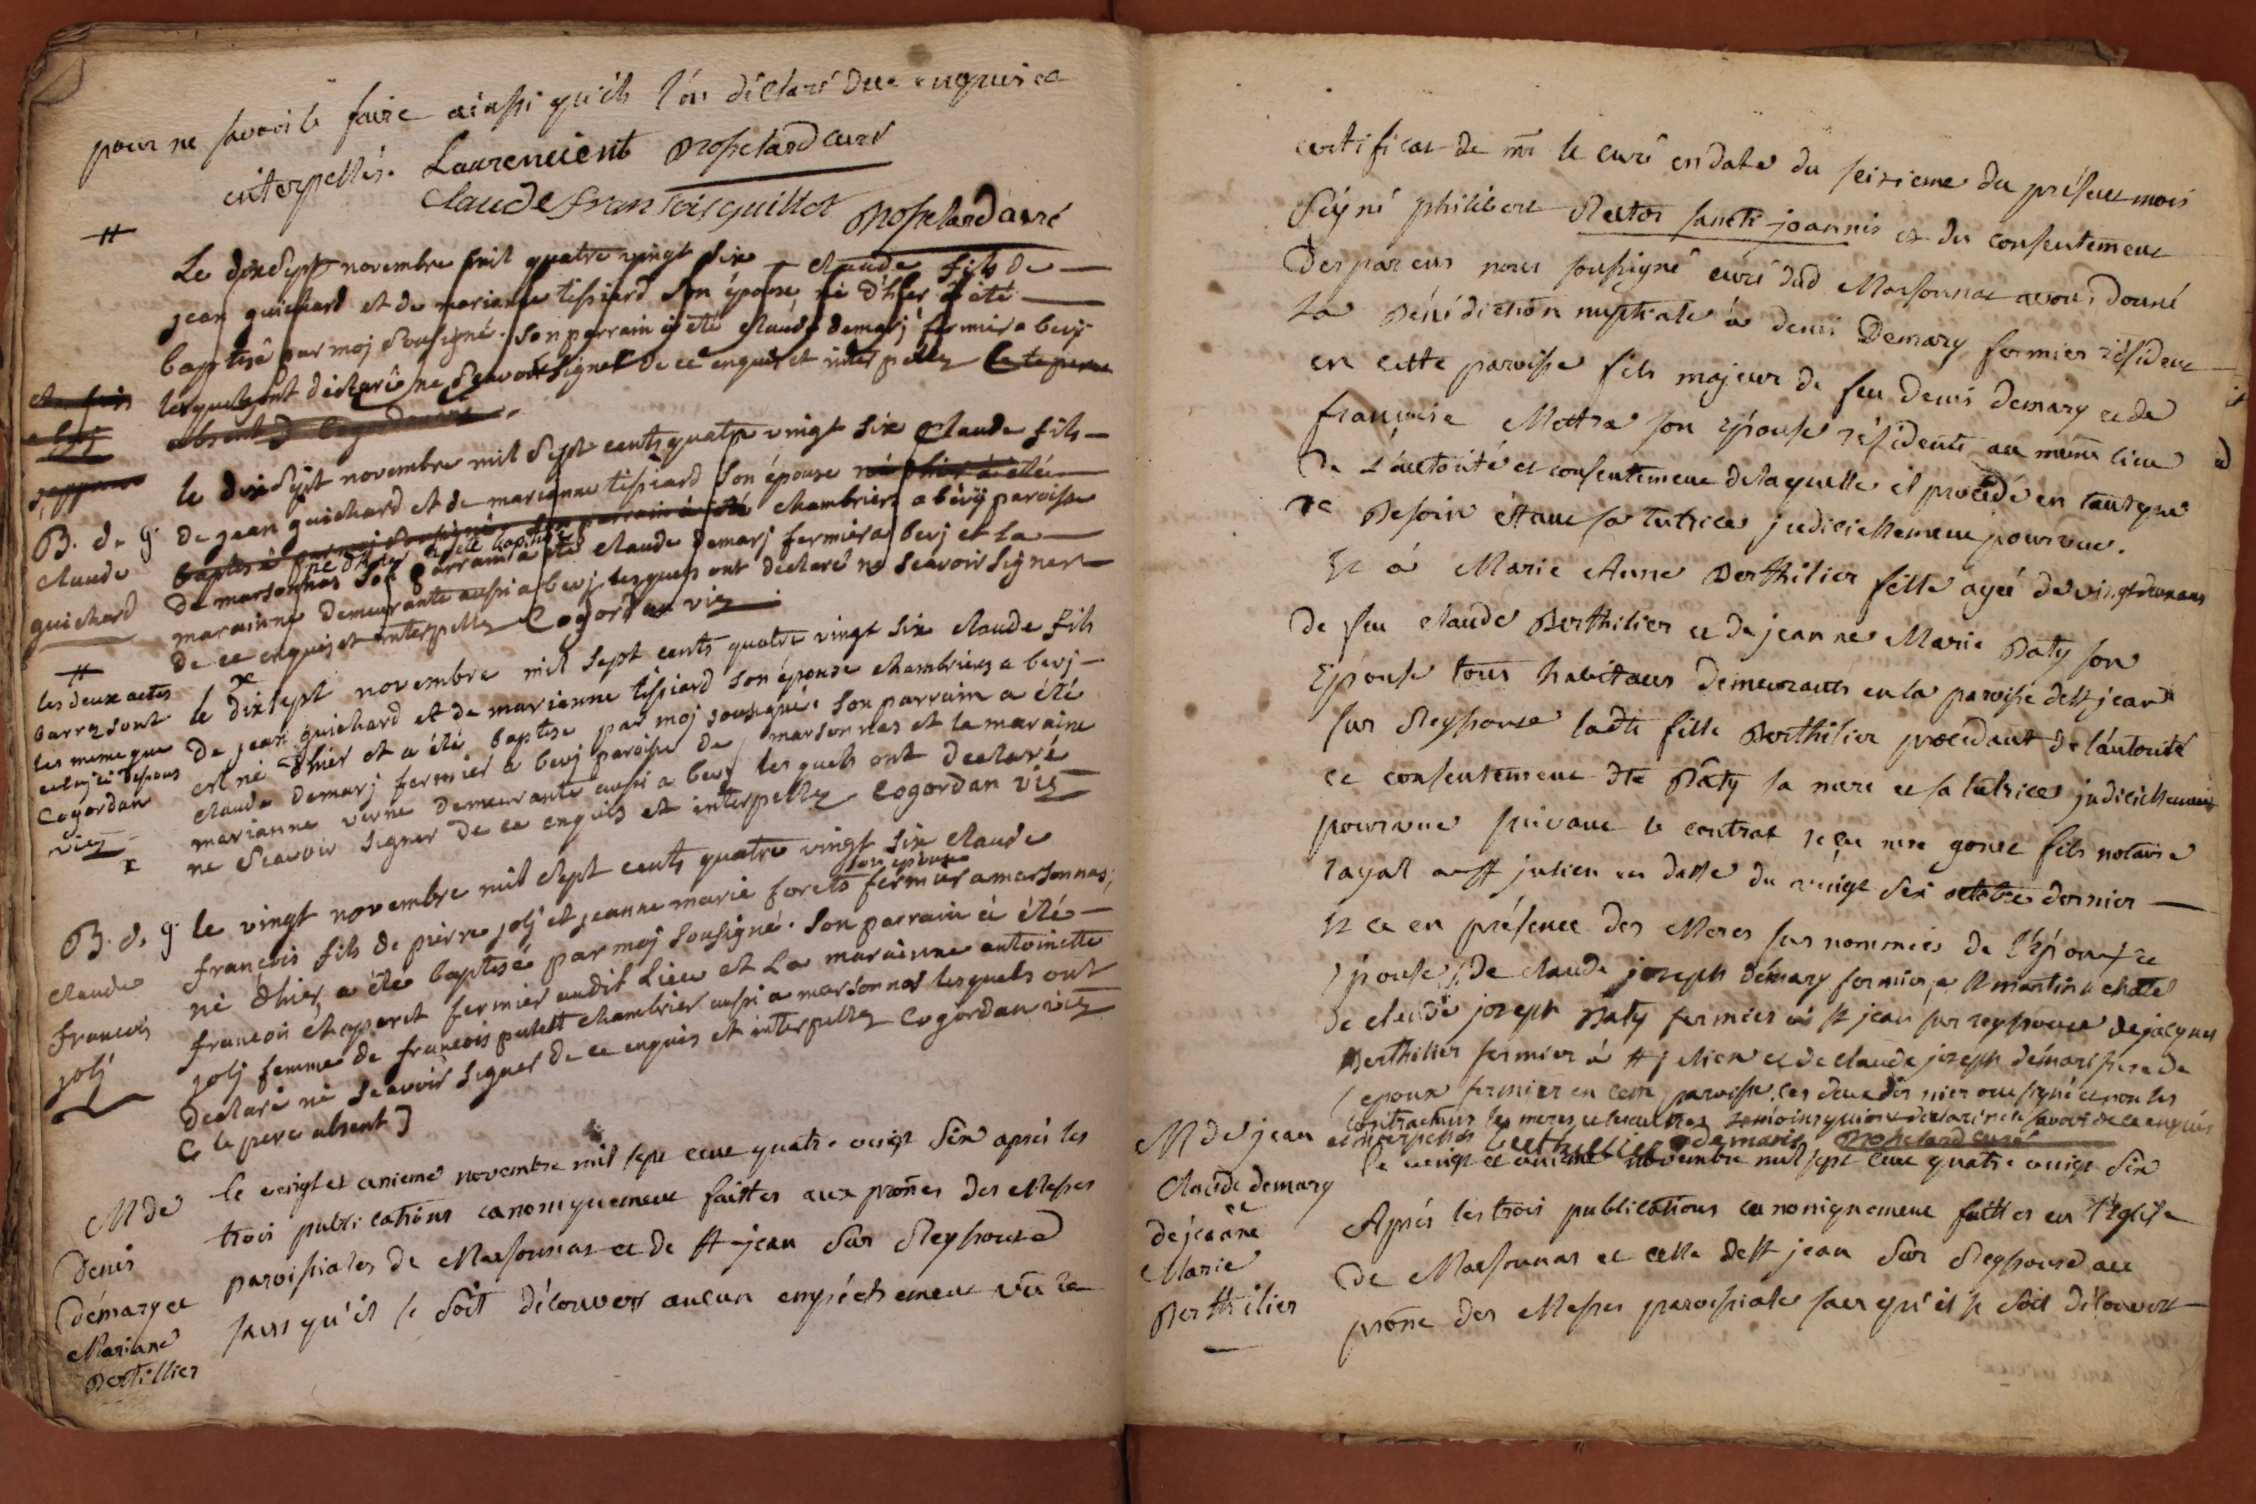 pour ne savoir le faire ainssi qu'ils l'on déclaré due enquis et
interpellés. Laurencient curé
Claude franCois guillot curé
#
Le dixSept novembre mil quatre vingt six claude fils de
jean guichard et de marianne tissiard son épouse, né d'hier à été
baptisé par moj Sousigné. Son parrain à été claude demarj fermier a bevj
lesquels ont déclaré ne Scavoir signer de ce enquis et interpellez le pere
absent
le dixsept novembre mil Sept cents quatre vingt six claude fils
B. d. g. de jean guichard et de marianne tissiard son épouse né d'hier à été
claude baptisé par moj Sousigné Son parrain à été chambriers a bévÿ paroisse
guichard de marsonnas son parrain a été claude demarj fermier a bevj et la
marainne demeurante aussi a bevj lesquels ont déclaré ne Scavoir Signer
de ce enquis et interpellez Cogordan vic
#
les deux actes
barrez sont
les meme que
celuj ci dessous
Cogordan
vic
x
le dixsept novembre mil sept cents quatre vingt six claude fils
de jean guichard et de marianne tissiard son épouse chambriers a bevj
est né d'hier et a été baptise par moj sousigné. Son parrain a été
claude demarj fermier a bevj paroisse de marsonnas et la maraine
marianne verne demeurante aussi a bevj lesquels ont declaré
ne Scavoir signer de ce enquis et interpellez Cogordan vic
B. d. g.
claude
francois
jolj
le vingt novembre mil Sept cents quatre vingt six claude
francois fils de pierre jolj et jeanne marie forets son epouse fermier a marsonnas,
né d'hier, a été baptisé par moj sousigné. Son parrain à été
francois fermier audit Lieu et La marainne antoinette
jolj femme de francois putett chambrier aussi a marsonnas lesquels ont
declaré ne Scavoir signer de ce enquis et interpellez Cogordan vic
C le pere absent J
M de
Denis
démary et
Mariane
Bertillier
le vingt et unieme novembre mil sept cent quatre vingt Six après les
trois publications canoniquement faittes aux prônes des Messes
paroissiales de Marsonnas et de St jean Sur Reyssouze
sans qu'il se soit découvert aucun empéchement vû le
certificat de mr le curé en date du seizieme du présent mois
Signé philibert Rector sancti joannis et du consentement
Des parens nous soussigné curé dud Marsonnas avons donné
La Bénédiction nuptiale à denis Demary fermier résident
en cette paroisse fils majeur de feu denis demary et de
françoise Mottra son Epouse résidente au même lieu
De L'autorité et consentement de laquelle il procéde en tant que
de Besoin étant sa tutrice judiciellement pourvue.
Et à Marie Anne Berthilier fille agée de vingt deux ans
De feu claude Berthilier et de jeanne Marie Baty son
Epouse tous habitans demeurants en la paroisse de St jean
sur Reyssouze ladte fille Berthilier procédant de l'autorité
et consentement dte Bâty sa mere et sa tutrice judiciellement
pourvue suivant le contrat reçu me gonet fils notaire
rayal a St julien en datte du vingt six octobre dernier
Et ce en présence des Meres sus nommées de l'époux et
épouse, De claude joseph démary fermier a St martin le chatel
de claude joseph Baty fermier à St jean sur reyssouze de jacques
Berthilier fermier à St julien et de claude joseph démari frere de
l'epoux fermier en cette paroisse. ces deux dernier ont signé et non les
contractans les meres et les autres témoins qui ont declaré ne le savoir de ce enquis
et interpellés berthellier demaris curé
M de jean
Claude demary
et
de jeanne
Marie
Berthilier
le vingt et unieme novembre mil sept cent quatre vingt Six
Aprés les trois publications canoniquement faittes en l'Eglise
De Marsonnas et celle de St jean Sur Reyssouze au
prône des Messes paroissiale sans qu'il se soit découvert